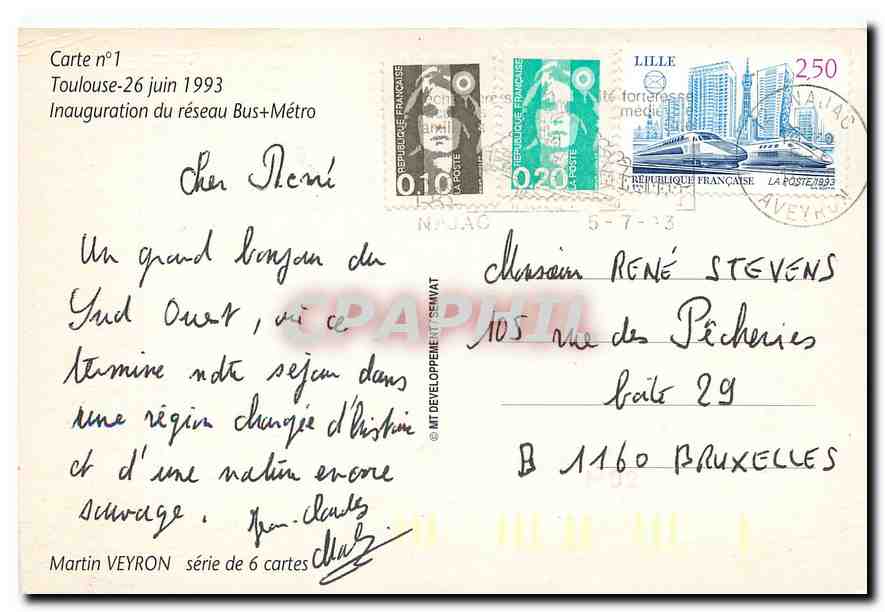 Carte n°1
Toulouse-26 juin 1993
Inauguration du réseau Bus+Métro
Cher René
Un grand bonjour du
Sud Ouest, où ce
termine notre séjour dans
une région chargée d'histoire
et d'une nature encore
sauvage. Jean-Claude
Martin VEYRON série de 6 cartes
© MT DEVELOPPEMENT/SEMVAT
CPAPHIL
RÉPUBLIQUE FRANÇAISE
0,10
LA POSTE
RÉPUBLIQUE FRANÇAISE
0,20
LA POSTE
LILLE
2,50
RÉPUBLIQUE FRANÇAISE LA POSTE 1993
forteresse
NAJAC
AVEYRON
NAJAC 5-7-93
Monsieur RENÉ STEVENS
105 rue des Pêcheries
boîte 29
B 1160 BRUXELLES